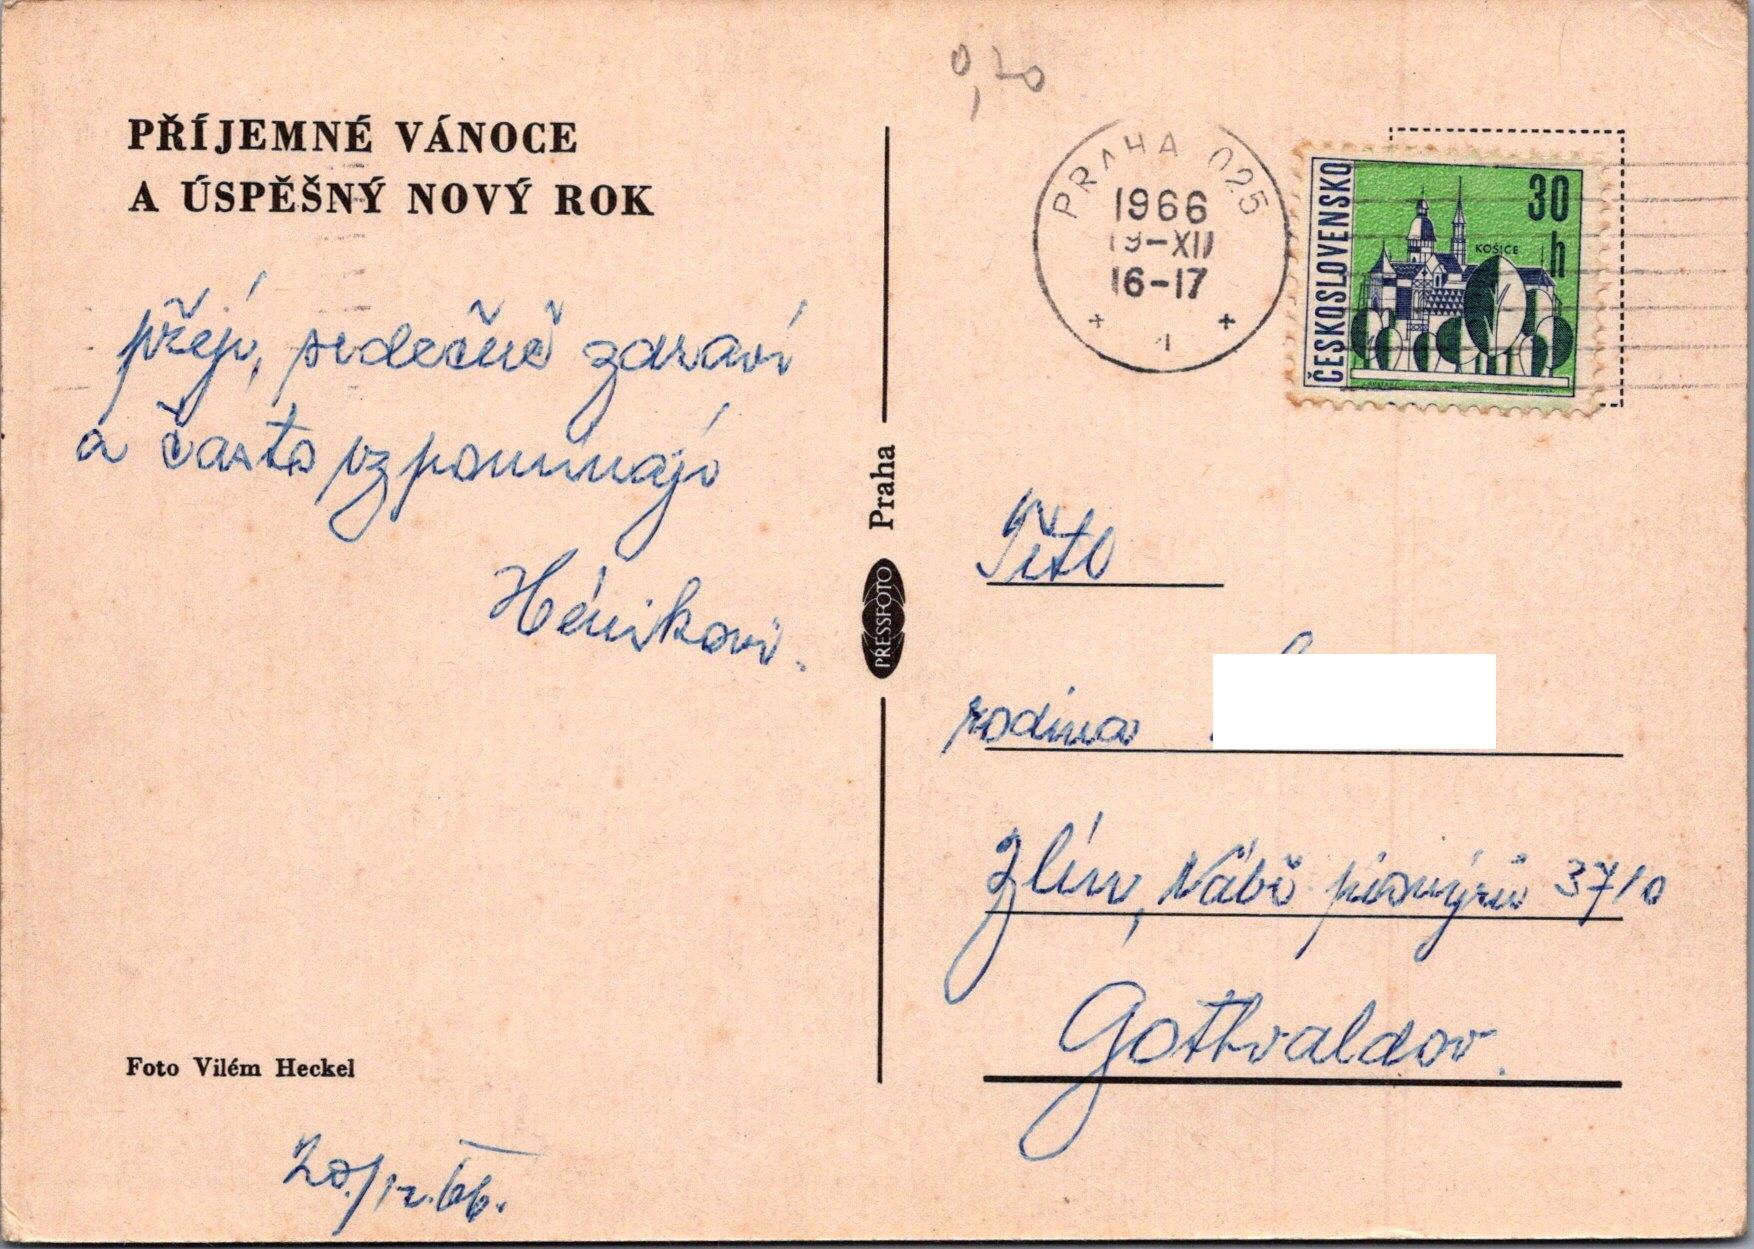 PŘÍJEMNÉ VÁNOCE
A ÚSPĚŠNÝ NOVÝ ROK
přejí, srdečně zdraví
a často vzpomínají
Foto Vilém Heckel
20./12.66.
Praha
PRESSFOTO
0,70
PRAHA 025
1966
19-XII
16-17
1
ČESKOSLOVENSKO
30
h
KOŠICE
Ctt
rodina
Zlín, Nábř pionýrů 3710
Gottvaldov.